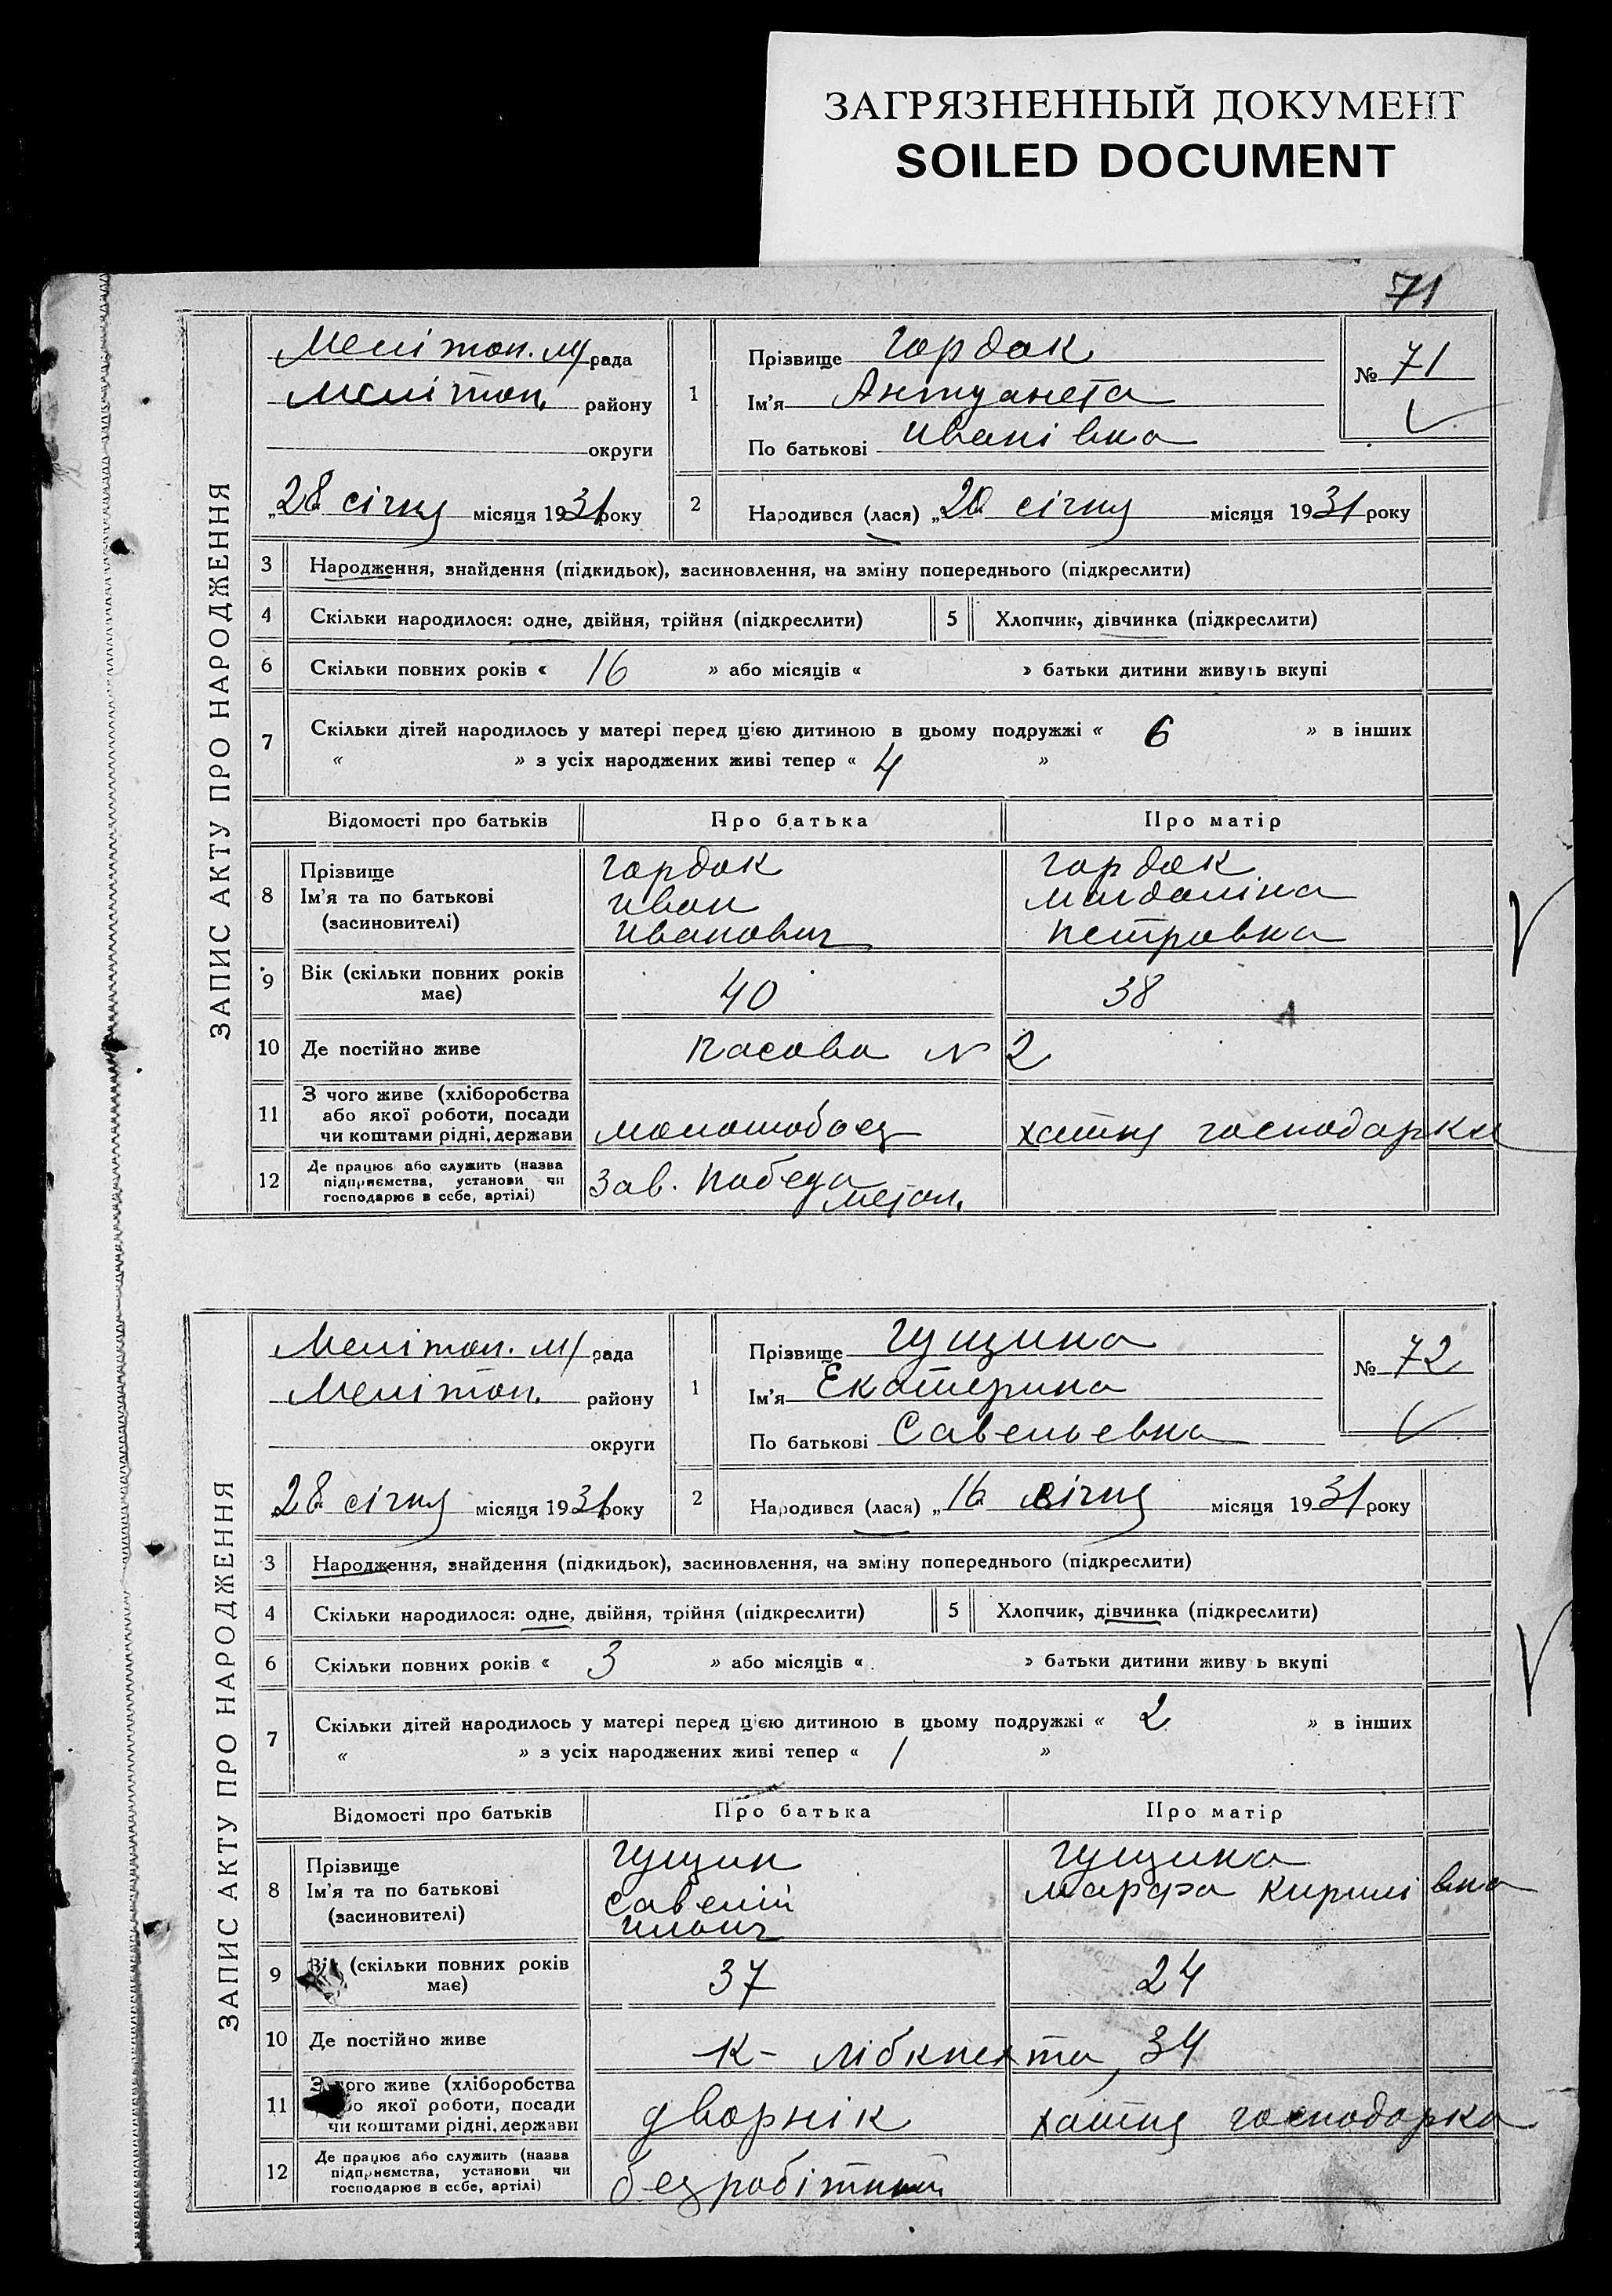 ЗАГРЯЗНЕННЫЙ ДОКУМЕНТ
SOILED DOCUMENT
71
ЗАПИС АКТУ ПРО НАРОДЖЕННЯ
Мелітоп. м/рада
Мелітоп. району
округи
„28" січня місяця 1931 року
1
Прізвище Гордак
Ім'я Антуанета
По батькові Иванівна
№ 71
2
Народився (лася) „20" січня місяця 1931 року
3 Народження, знайдення (підкидьок), засиновлення, на зміну попереднього (підкреслити)
4 Скільки народилося: одне, двійня, трійня (підкреслити)
5 Хлопчик, дівчинка (підкреслити)
6 Скільки повних років « 16 » або місяців « » батьки дитини живуть вкупі
7 Скільки дітей народилось у матері перед цією дитиною в цьому подружжі « 6 » в інших
« » з усіх народжених живі тепер « 4 »
Відомості про батьків Про батька Про матір
8 Прізвище
Ім'я та по батькові
(засиновителі)
Гордак
Иван
Иванович
Гордак
Магдаліна
Петровна
9 Вік (скільки повних років
має)
40 38
10 Де постійно живе
Касова N 2
11 З чого живе (хліборобства
або якої роботи, посади
чи коштами рідні, держави
молотобоец хатня господарка
12 Де працює або служить (назва
підприємства, установи чи
господарює в себе, артілі)
Зав. Победа
метал.
ЗАПИС АКТУ ПРО НАРОДЖЕННЯ
Мелітоп. м/рада
Мелітоп. району
округи
„28" січня місяця 1931 року
1
Прізвище Гущина
Ім'я Екатерина
По батькові Савельевна
№ 72
2
Народився (лася) „16" січня місяця 1931 року
3 Народження, знайдення (підкидьок), засиновлення, на зміну попереднього (підкреслити)
4 Скільки народилося: одне, двійня, трійня (підкреслити)
5 Хлопчик, дівчинка (підкреслити)
6 Скільки повних років « 3 » або місяців « » батьки дитини живу ь вкупі
7 Скільки дітей народилось у матері перед цією дитиною в цьому подружжі « 2 » в інших
« » з усіх народжених живі тепер « 1 »
Відомості про батьків Про батька Про матір
8 Прізвище
Ім'я та по батькові
(засиновителі)
Гущин
Савелій
Ильич
Гущина
Марфа Кирилівна
9 Вік (скільки повних років
має)
37 24
10 Де постійно живе
К- Лібкнехта, 34
11 З чого живе (хліборобства
або якої роботи, посади
чи коштами рідні, держави
дворнік хатня господарка
12 Де працює або служить (назва
підприємства, установи чи
господарює в себе, артілі)
безробітний